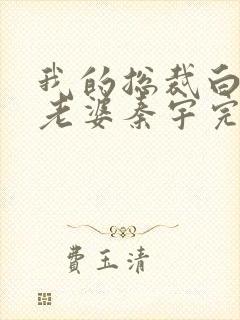 我的总裁白
老婆秦宇完
费玉清